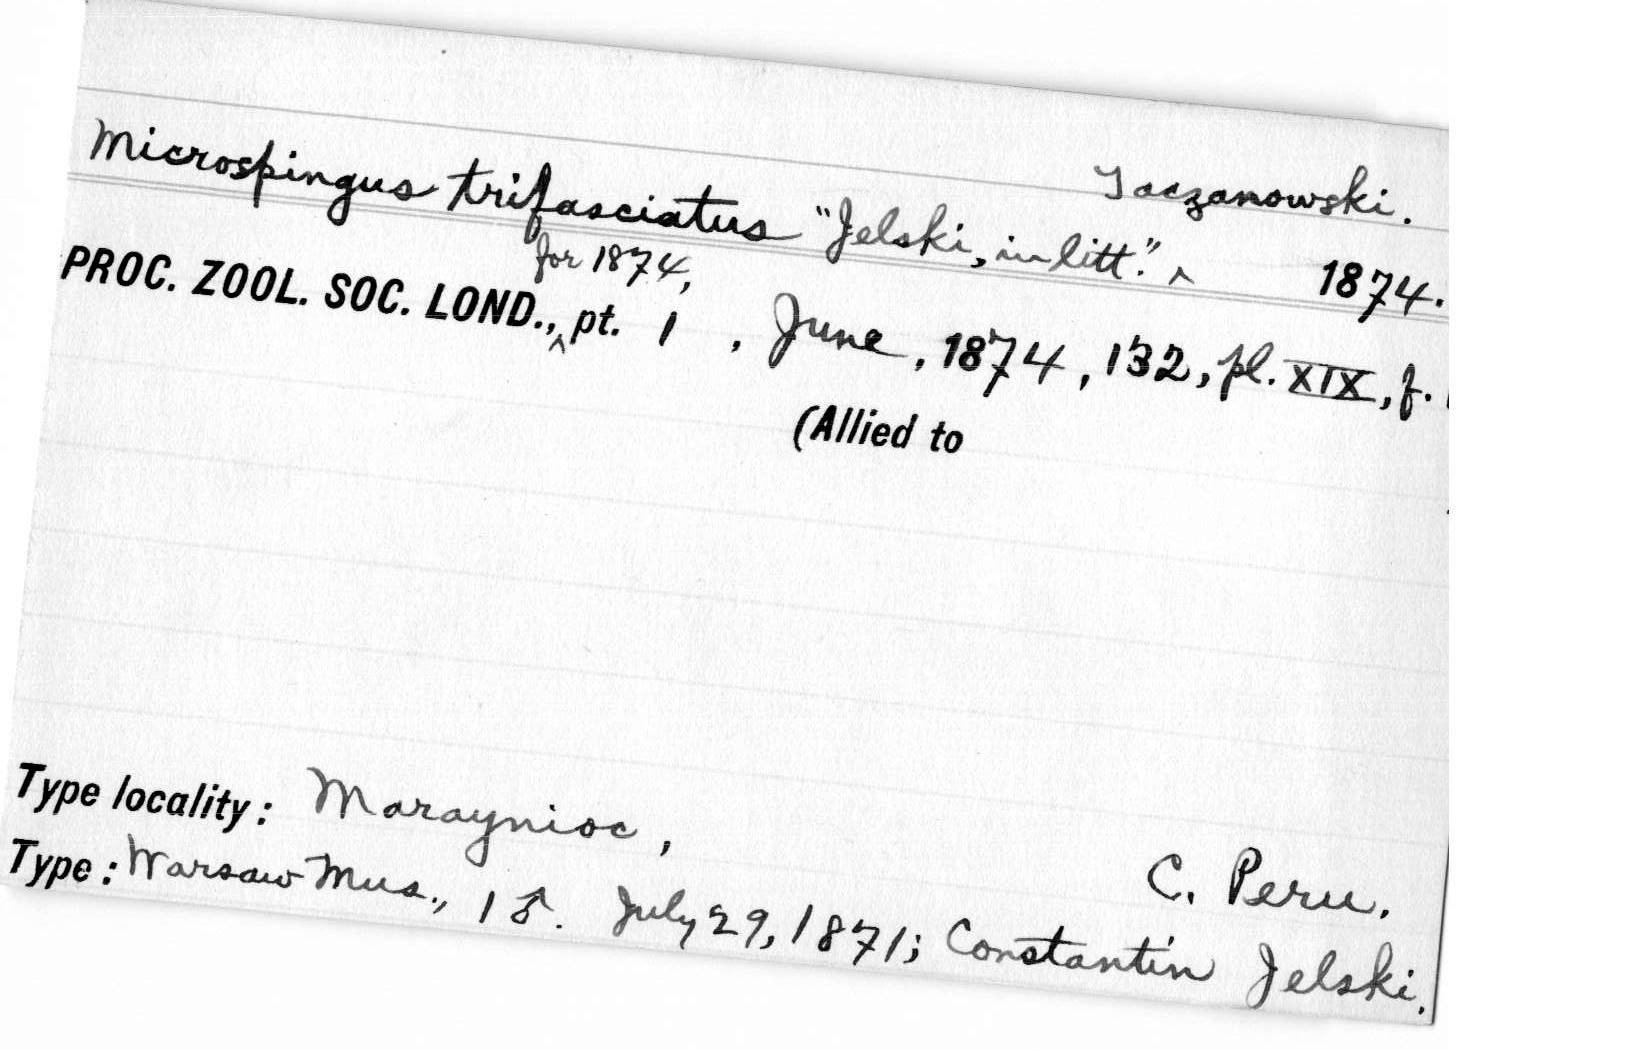 Taczanowski.
Microspingus trifasciatus "Jelski, in litt." ^ 1874.
for 1874,
PROC. ZOOL. SOC. LOND., ^ pt. 1, June, 1874, 132, pl. XIX, f.
(Allied to
Type locality: Maraynioc,
C. Peru.
Type: Warsaw Mus., 1 ♂. July 29, 1871; Constantin Jelski.